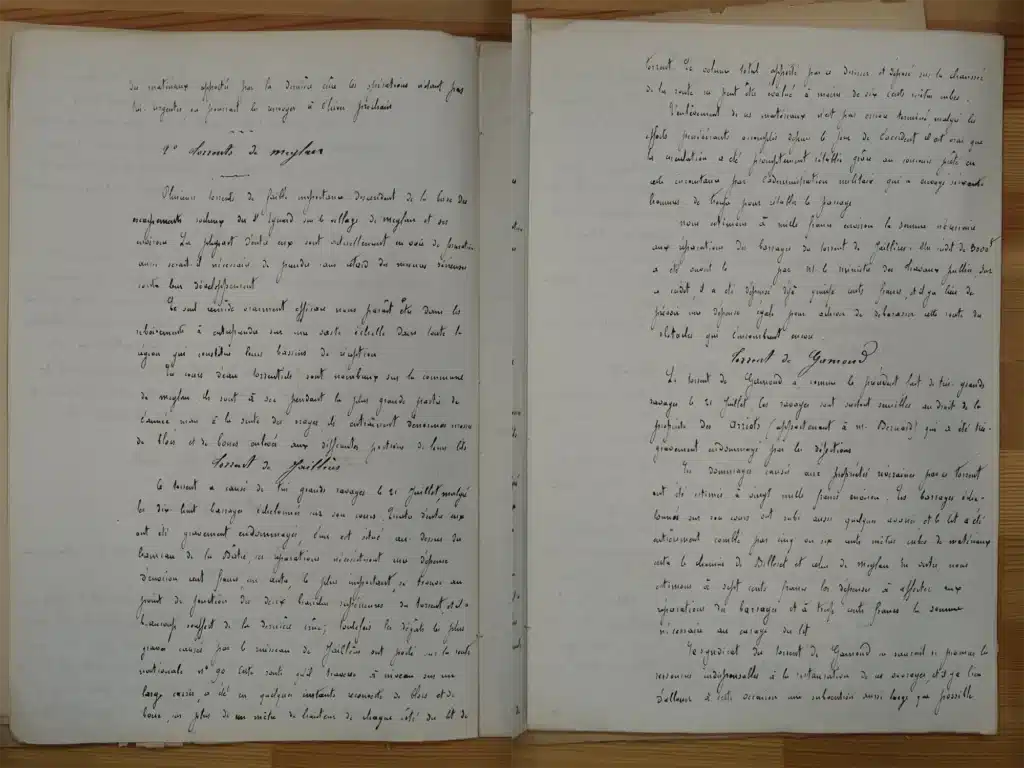 des matériaux apportés par la dernière crue les opérations n'étant pas
très urgentes on pourrait les renvoyer à l'hiver prochain
1° Torrents de Meylan
Plusieurs torrents de faible importance descendent de la base des
escarpements rocheux du St Eynard sur le village de Meylan et ses
environs La plupart d'entre eux sont actuellement en voie de formation
aussi serait-il nécessaire de prendre sans retard des mesures sérieuses
contre leur développement
Le seul remède vraiment efficace nous paraît être dans les
reboisements à entreprendre sur une vaste échelle dans toute la
région qui constitue leurs bassins de réception
Les cours d'eau torrentiels sont nombreux sur la commune
de Meylan ils sont à sec pendant la plus grande partie de
l'année mais à la suite des orages, ils entraînent d'énormes masses
de blocs et de boues enlevées aux différentes portions de leurs lits
Torrent de Jaillières
Ce torrent a causé de très grands ravages le 21 Juillet malgré
les dix huit barrages échelonnés sur son cours. Quatre d'entre eux
ont été gravement endommagés, l'un est situé au-dessus du
hameau de la Bâtie, ses réparations nécessiteront une dépense
d'environ cent francs, un autre, le plus important, se trouve au
point de jonction des deux branches supérieures du torrent, et a
beaucoup souffert de la dernière crue; toutefois les dégâts les plus
graves causés par le ruisseau de Jaillières ont porté sur la route
nationale n° 90 Cette route qu'il traverse à niveau sur un
large cassis, a été en quelques instants recouverte de blocs et de
boue, sur plus de un mètre de hauteur de chaque côté du lit du
torrent. Le volume total apporté par ce dernier et déposé sur la chaussée
de la route ne peut être évalué à moins de six cents mètres cubes.
L'enlèvement de ces matériaux n'est pas encore terminé malgré les
efforts persévérants accomplis depuis le jour de l'accident il est vrai que
la circulation a été promptement rétablie grâce au concours prêté en
cette circonstance par l'administration militaire qui a envoyé
hommes de troupe pour rétablir le passage
Nous estimons à mille francs environ la somme nécessaire
aux réparations des barrages du torrent de Jaillières. Un crédit de 3000f
a été ouvert le par M. le ministre des Travaux publics, Sur
ce crédit, il a été dépensé déjà quinze cents francs, et il y a lieu de
prévoir une dépense égale pour achever de débarrasser cette route des
obstacles qui l'encombrent encore.
Torrent de Gamond
Le torrent de Gamond a, comme le précédent fait de très grands
ravages le 21 Juillet. Ces ravages sont surtout sensibles au droit de la
propriété des (appartenant à M. Bernard) qui a été très
gravement endommagée par les déjections
Les dommages causés aux propriétés riveraines par ce torrent
ont été estimés à vingt mille francs environ. Les barrages éche-
lonnés sur son cours ont subi aussi quelques avaries et le lit a été
entièrement comblé par cinq ou six cents mètres cubes de matériaux
entre le chemin de Billerot et celui de Meylan En outre, nous
estimons à sept cents francs les dépenses à affecter aux
réparations des barrages et à treize cents francs la somme
nécessaire au curage du lit
Le syndicat du torrent de Gamond ne saurait se procurer les
ressources indispensables à la restauration de ces ouvrages, et il y a lieu
d'allouer à cette occasion une subvention aussi large que possible